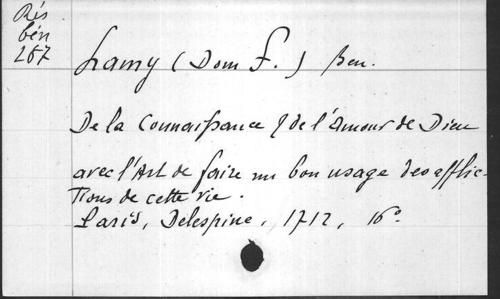 Rés
bén
267
Lamy (Dom F.) Ben.
De la connaissance & de l'Amour de Dieu
avec l'Art de faire un bon usage des afflic-
tions de cette vie.
Paris, Delespine, 1712, 16°